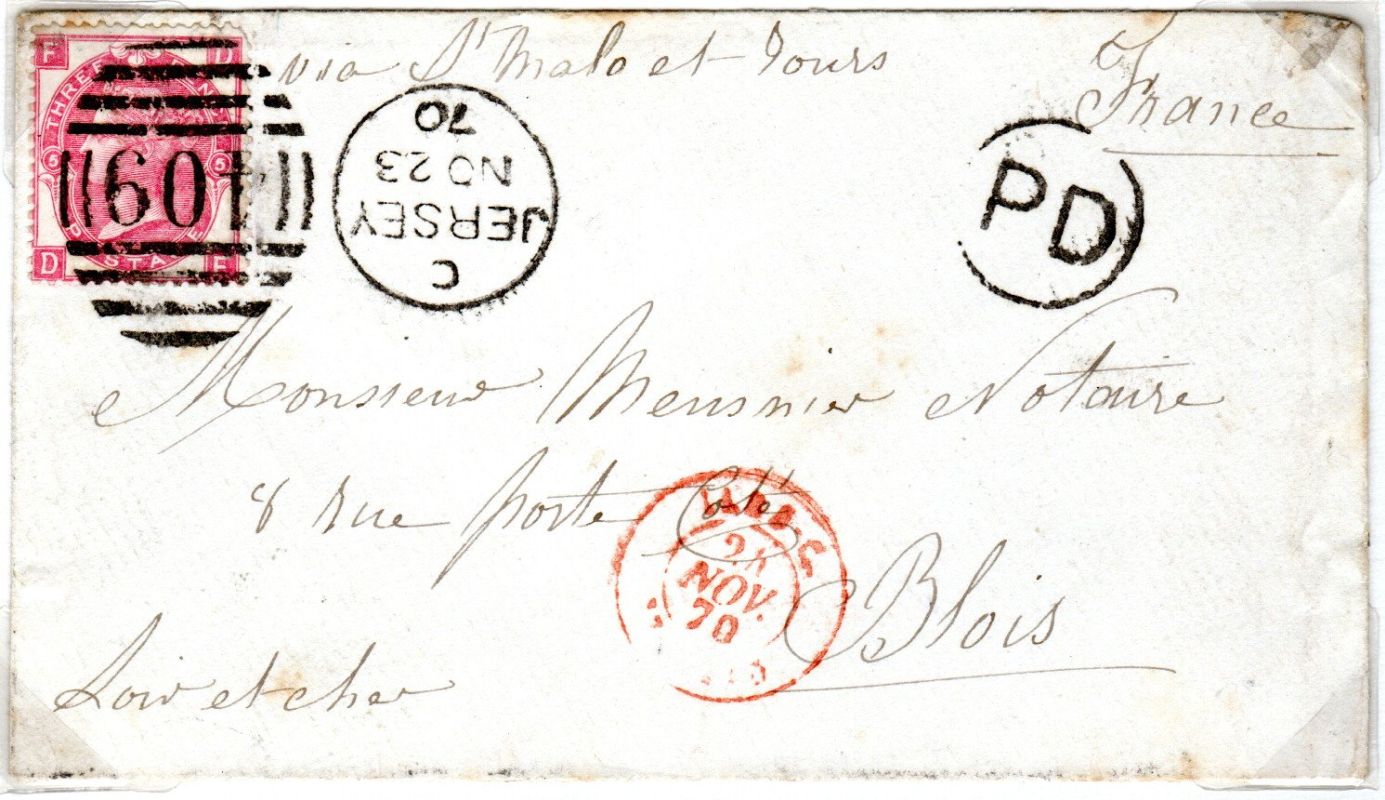 via St Malo et Tours
France
F D
THREE PENCE
5 5
POSTAGE
D F
409
C
JERSEY
NO 23
70
PD
Monsieur Meusnier Notaire
8 rue porte Côté
Blois
Loir et cher
NOV.
70